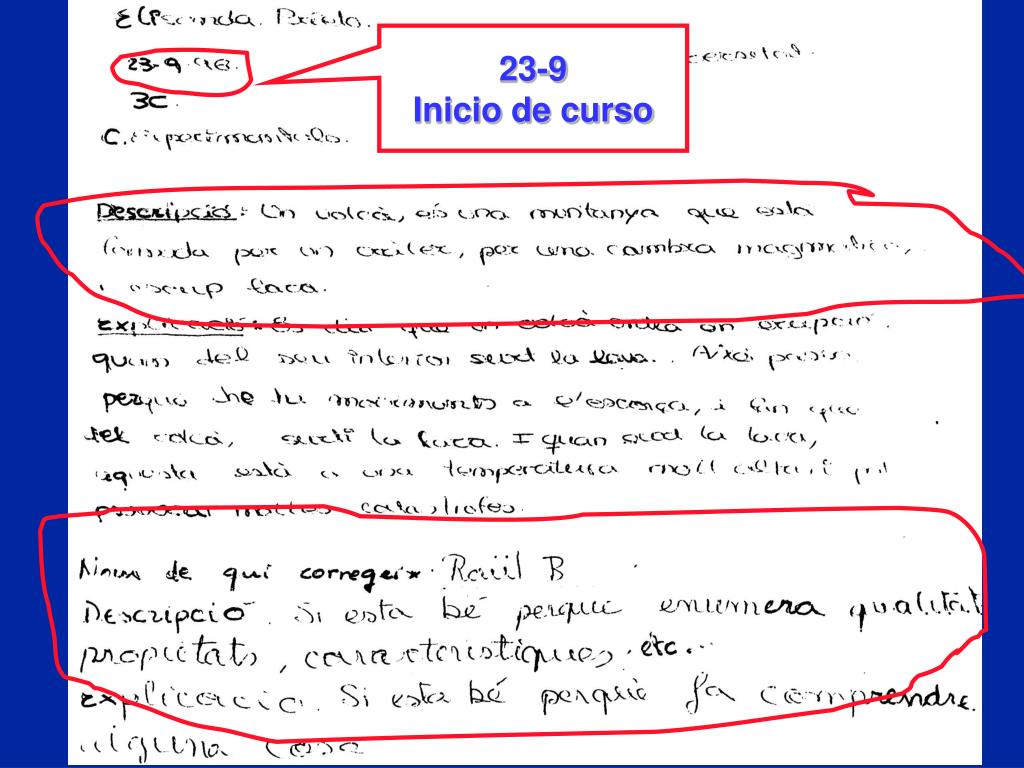 23-9
3C.
23-9
Inicio de curso
Descripció: Un volcà, és una muntanya que esta
formada por un cràter, per una cambra magmàtica,
i escup laca.
Explicació: Es diu que un volcà entra en erupció
quan del seu interior surt la lava. Això passa
perquè hi ha moviments a l'escorça, i fan que
volcà, surti la laca. I quan surt la laca,
aquesta està a una temperatura molt alta, i pot
provocar moltes catastrofes.
Nom de qui corregeix Raül B
Descripció. Si esta bé perquè enumera qualitats
propietats, caracteristiques, etc...
Explicació. Si esta bé perquè fa comprendre.
alguna cosa